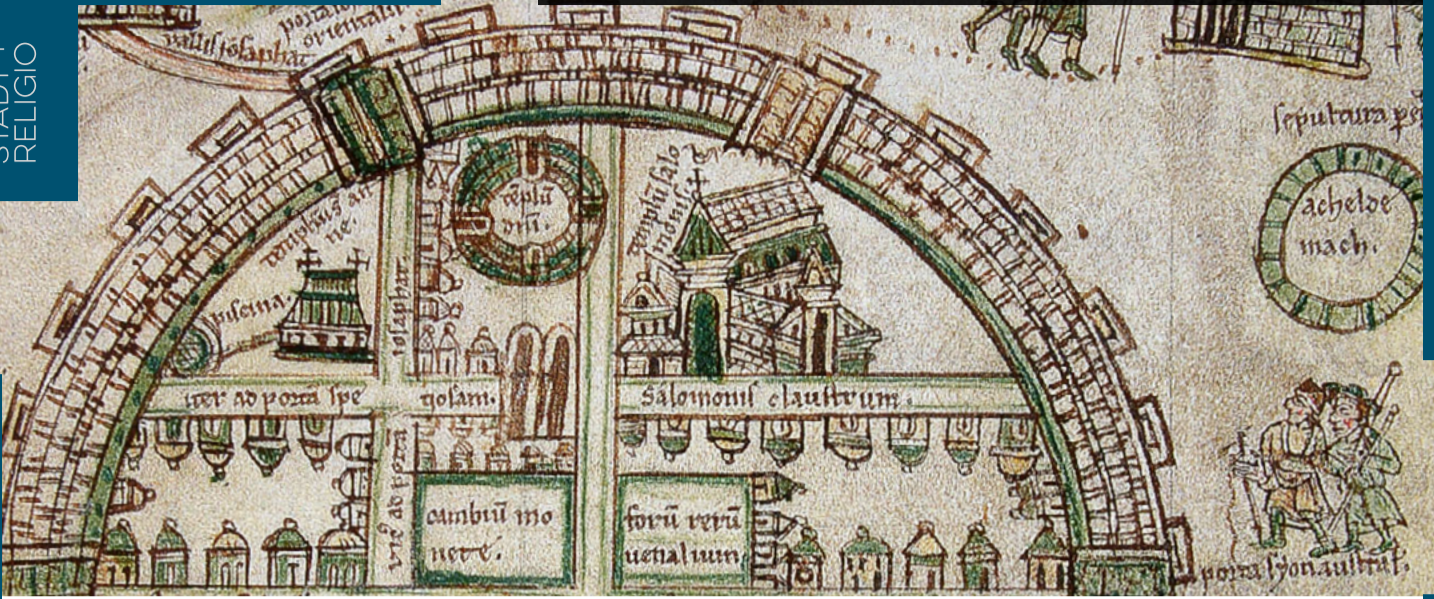 RELIGIO
porta
orientalis.
vallis iosaphat
sepultura
acheloe
mach.
tēplū
dn̄i.
templū salo
monis
templū s̄ an
ne.
piscina.
iosaphat
iter ad portā spe
tiosam.
Salomonis claustrum.
vic⁹ ad porta
cambiū mo
nete.
forū rerū
uenalium.
porta syon austral.